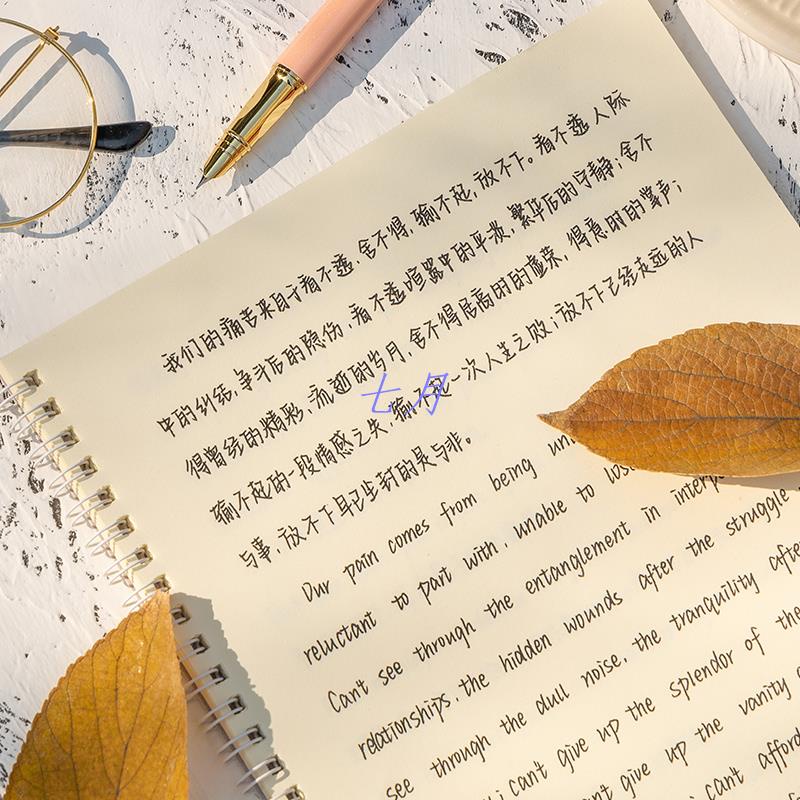 我们的痛苦来自于看不透,舍不得,输不起,放不下。看不透人际
中的纠结,争斗后的隐伤,看不透喧嚣中的平淡,繁华后的宁静;舍不
得曾经的精彩,流逝的岁月,舍不得居高时的虚荣,得意时的掌声;
七月
输不起的一段情感之失,输不起一次人生之败;放不下已经走远的人
与事,放不下早已尘封的是与非。
Our pain comes from being
reluctant to part with, unable to
Can't see through the entanglement in
relationships, the hidden wounds after the struggle
see through the dull noise, the tranquility
see i can't give up the splendor of the
can't give up the vanity
i can't